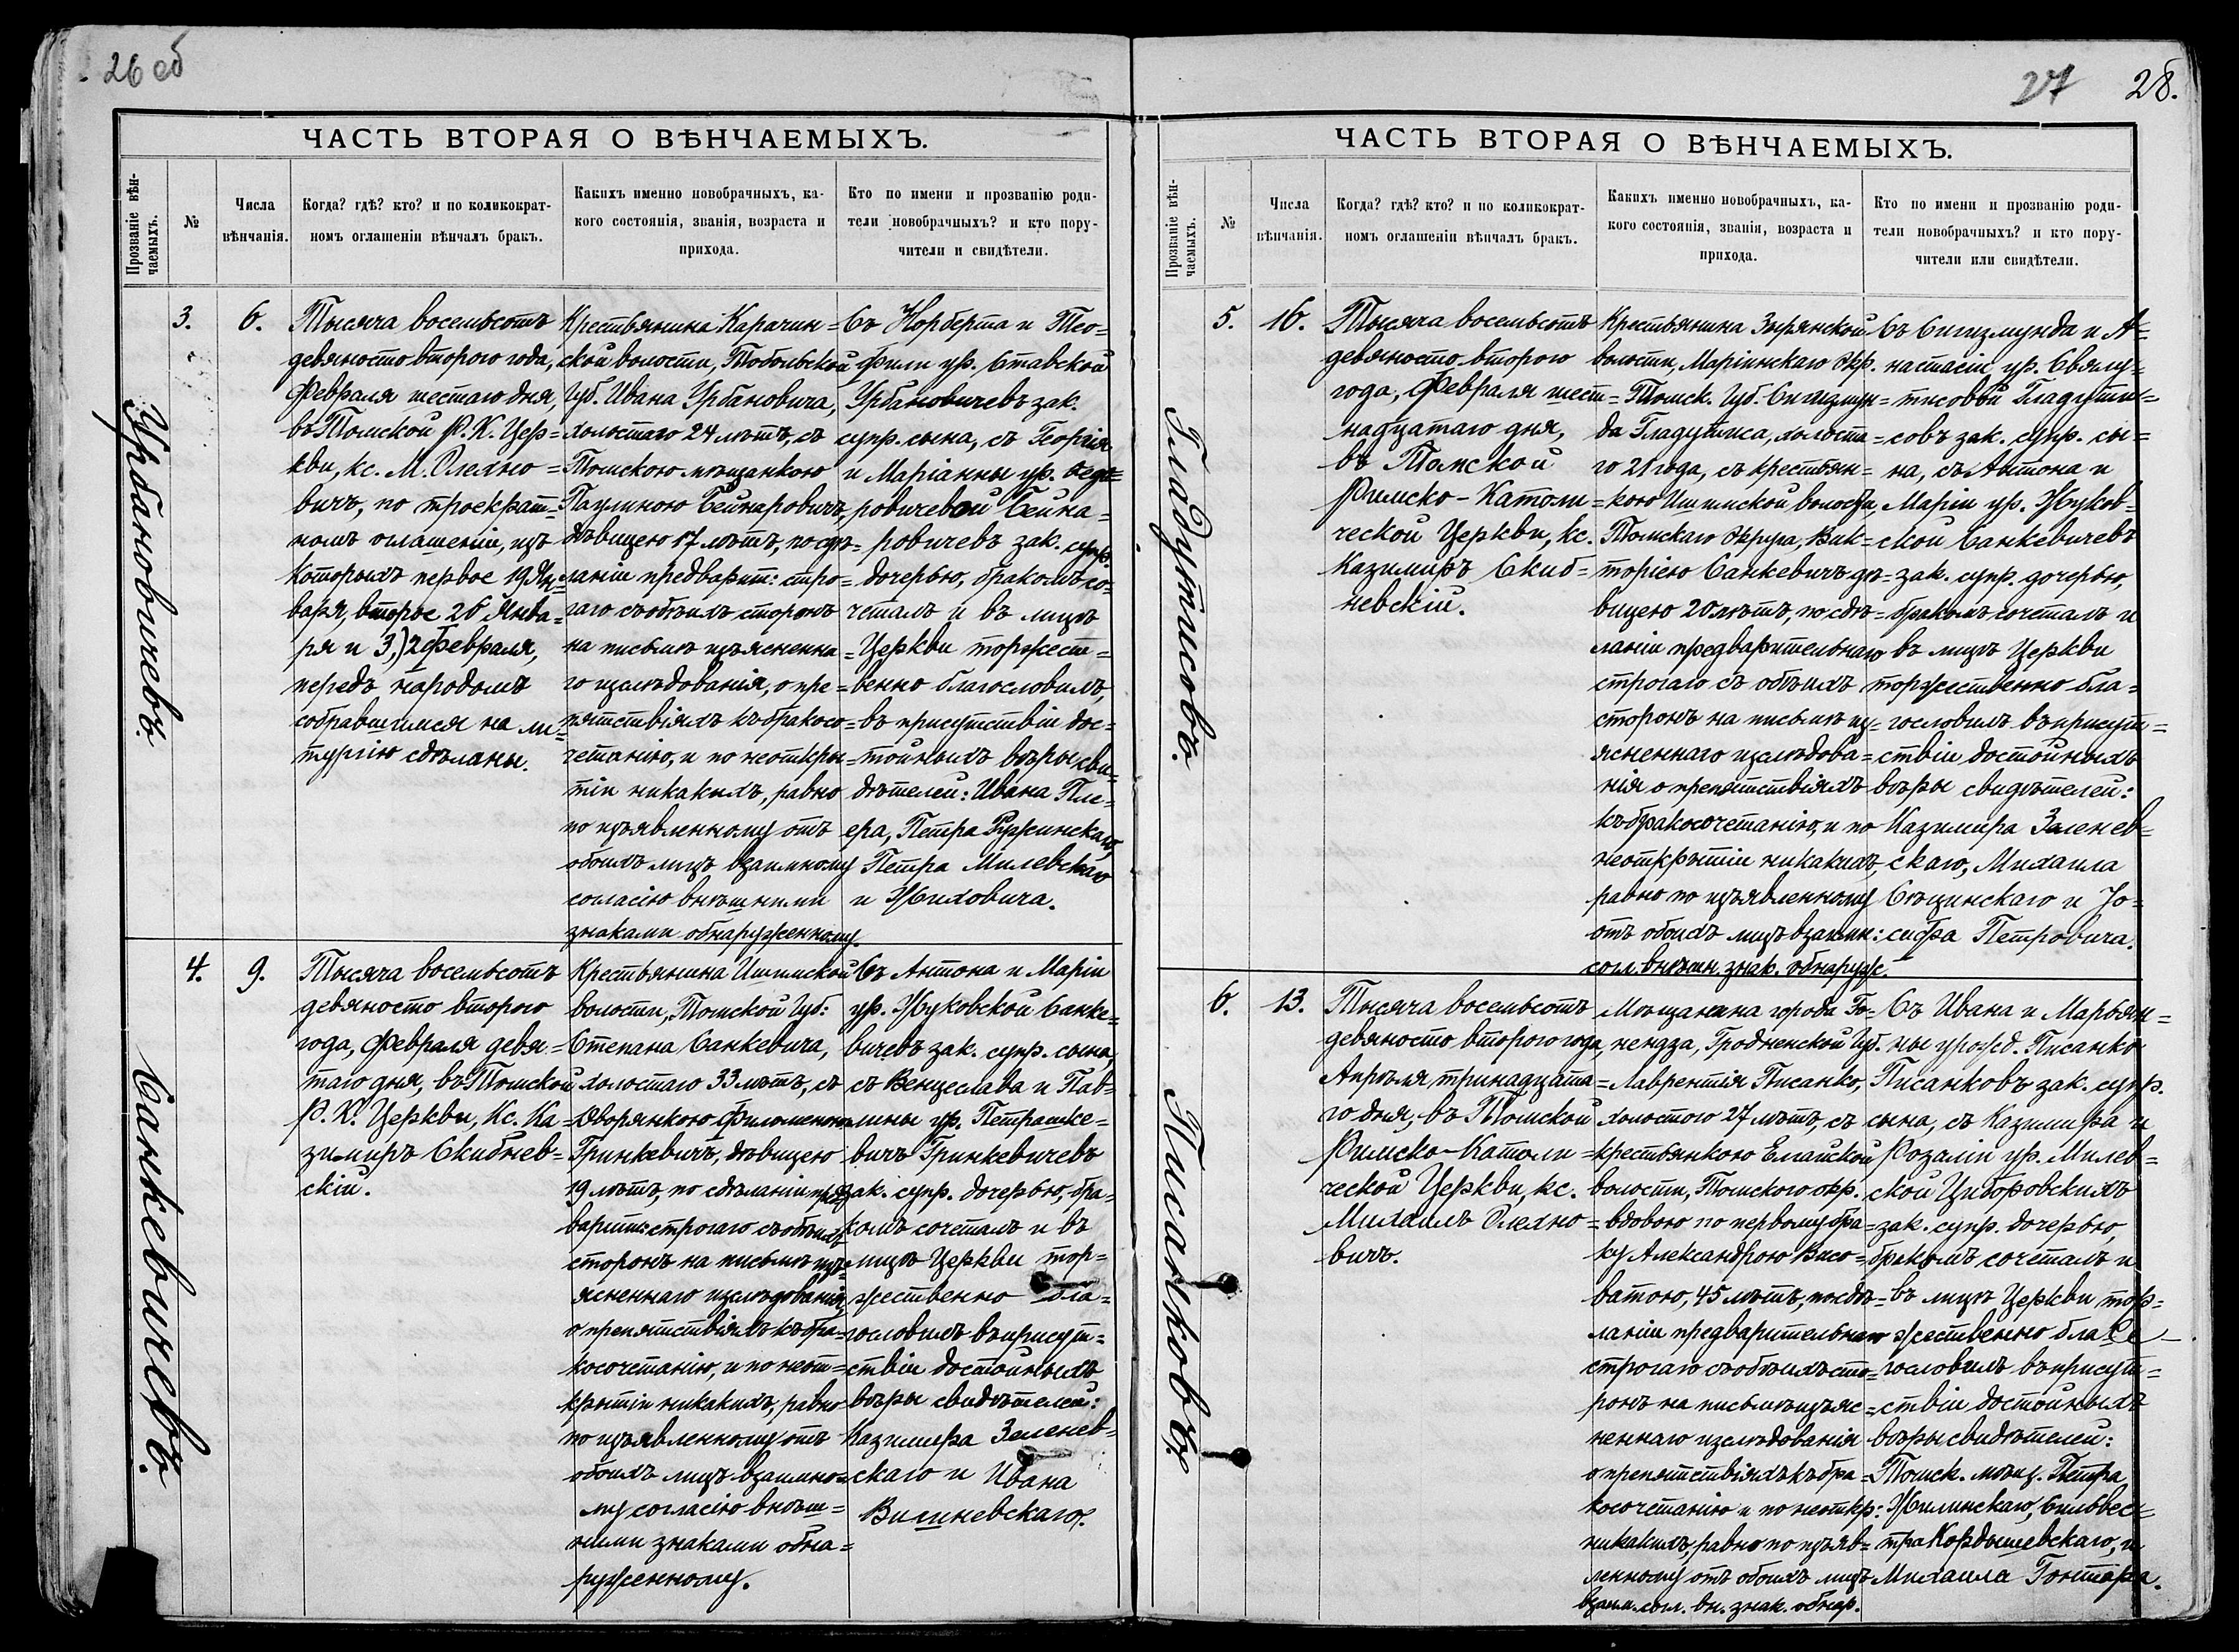 26 об
ЧАСТЬ ВТОРАЯ О ВѢНЧАЕМЫХЪ.
Прозваніе вѣн-
чаемыхъ.
№
Числа
вѣнчанія.
Когда? гдѣ? кто? и по коликократ-
номъ оглашеніи вѣнчалъ бракъ.
Какихъ именно новобрачныхъ, ка-
кого состоянія, званія, возраста и
прихода.
Кто по имени и прозванію роди-
тели новобрачныхъ? и кто пору-
чители и свидѣтели.
Урбановичевъ.
3.
6.
Тысяча восемьсотъ
девяносто второго года,
Февраля шестаго дня,
въ Томской Р. К. Цер=
кви, кс. М. Олехно=
вичъ, по троекрат=
номъ оглашеніи, изъ
которыхъ первое 19 Ян=
варя, второе 26 Янва=
ря и 3,) 2 Февраля,
передъ народомъ
собравшимся на ли=
тургію сдѣланы.
Крестьянина Карачин=
ской волости, Тобольской
Губ. Ивана Урбановича,
холостаго 24 лѣтъ, съ
Томскою мѣщанкою
Паулиною Бейнаровичъ,
дѣвицею 17 лѣтъ, по сдѣ=
ланіи предварит: стро=
гаго съ обѣихъ сторонъ
на письмѣ изъясненна=
го изслѣдованія, о пре=
пятствіяхъ къ бракосо=
четанію, и по неоткры=
тіи никакихъ, равно
по изъявленному отъ
обоихъ лицъ взаимному
согласію внѣшними
знаками обнаруженному.
Съ Норберта и Тео=
фили ур. Ставской
Урбановичевъ зак.
супр. сына, съ Георгія
и Маріанны ур. Федо=
ровичевой Бейна=
ровичевъ зак. супр.
дочерью, бракомъ со=
четалъ и въ лицѣ
Церкви торжест=
венно благословилъ,
въ присутствіи дос=
тойныхъ вѣры сви=
дѣтелей: Ивана Пле=
ера, Петра Ружинскаго,
Петра Милевскаго
и Жиховича.
Санкевичевъ.
4.
9.
Тысяча восемьсотъ
девяносто второго
года, Февраля девя=
таго дня, въ Томской
Р. К. Церкви, Кс. Ка=
зимиръ Скибнев=
скій.
Крестьянина Ишимской
волости, Томской Губ:
Степана Санкевича,
холостаго 33 лѣтъ, съ
Дворянкою Филоменою
Гринкевичъ, дѣвицею
19 лѣтъ, по сдѣланіи пред=
варит: строгаго съ обѣихъ
сторонъ на письмѣ изъ=
ясненнаго изслѣдованія,
о препятствіяхъ къ бра=
косочетанію, и по неот=
крытіи никакихъ, равно
по изъявленному отъ
обоихъ лицъ взаимно=
му согласію внѣш=
ними знаками обна=
руженному.
Съ Антона и Маріи
ур. Жуковской Санке=
вичевъ зак. супр. сына,
съ Венцеслава и Пав=
лины ур. Петрашке=
вичъ Гринкевичевъ
зак. супр. дочерью, бра=
комъ сочеталъ и въ
лицѣ Церкви тор=
жественно бла=
гословилъ въ присут=
ствіи достойныхъ
вѣры свидѣтелей:
Казимира Зеленев=
скаго и Ивана
Вишневскаго.
27 28.
ЧАСТЬ ВТОРАЯ О ВѢНЧАЕМЫХЪ.
Прозваніе вѣн-
чаемыхъ.
№
Числа
вѣнчанія.
Когда? гдѣ? кто? и по коликократ-
номъ оглашеніи вѣнчалъ бракъ.
Какихъ именно новобрачныхъ, ка-
кого состоянія, званія, возраста и
прихода.
Кто по имени и прозванію роди-
тели новобрачныхъ? и кто пору-
чители или свидѣтели.
Гладутисовъ.
5.
16.
Тысяча восемьсотъ
девяносто второго
года, Февраля шест=
надцатаго дня,
въ Томской
Римско-Католи=
ческой Церкви, кс.
Казимиръ Скиб=
невскій.
Крестьянина Зырянской
волости, Маріинскаго окр.
Томск. Губ. Сигизмун=
да Гладутиса, холоста=
го 21 года, съ крестьян=
кою Ишимской волости,
Томскаго округа, Вик=
торіею Санкевичъ дѣ=
вицею 20 лѣтъ, по сдѣ=
ланіи предварительнаго
строгаго съ обѣихъ
сторонъ на письмѣ из=
ясненнаго изслѣдова=
нія о препятствіяхъ
къ бракосочетанію, и по
неоткрытіи никакихъ,
равно по изъявленному
отъ обоихъ лицъ взаимн:
согл. внѣшн. знак. обнаруж.
Съ Сигизмунда и А=
настасіи ур. Свялу=
тисовой Гладути=
совъ зак. супр. сы=
на, съ Антона и
Маріи ур. Жуков=
ской Санкевичевъ
зак. супр. дочерью,
бракомъ сочеталъ и
въ лицѣ Церкви
торжественно бла=
гословилъ въ присут=
ствіи достойныхъ
вѣры свидѣтелей:
Казимира Зеленев=
скаго, Михаила
Сѣцинскаго и Іо=
сифа Петровича.
Писанковъ.
6.
13.
Тысяча восемьсотъ
девяносто второго года,
Апрѣля, тринадцата=
го дня, въ Томской
Римско-Католи=
ческой Церкви, кс.
Михаилъ Олехно=
вичъ.
Мѣщанина города Го=
нендза, Гродненской Губ.
Лаврентія Писанко,
холостого 27 лѣтъ, съ
крестьянкою Елайской
волости, Томскаго окр.
вдовою по первому бра=
ку Александрою Висо=
ватою, 45 лѣтъ, по сдѣ=
ланіи предварительнаго
строгаго съ обѣихъ сто=
ронъ на письмѣ изъяс=
неннаго изслѣдованія
о препятствіяхъ къ бра=
косочетанію и по неоткр:
никакихъ, равно по изъяв=
ленному отъ обоихъ лицъ
взаим. согл. вн. знак. обнар.
Съ Ивана и Марьян=
ны урожд. Писанко
Писанковъ зак. супр.
сына, съ Казимира и
Розаліи ур. Милев=
ской Циборовскихъ
зак. супр. дочерью,
бракомъ сочеталъ и
въ лицѣ Церкви тор=
жественно бла=
гословилъ въ присут=
ствіи достойныхъ
вѣры свидѣтелей:
Томск. мѣщ. Петра
Жилинскаго, Сильвес=
тра Кордышевскаго, и
Михаила Гонтара.